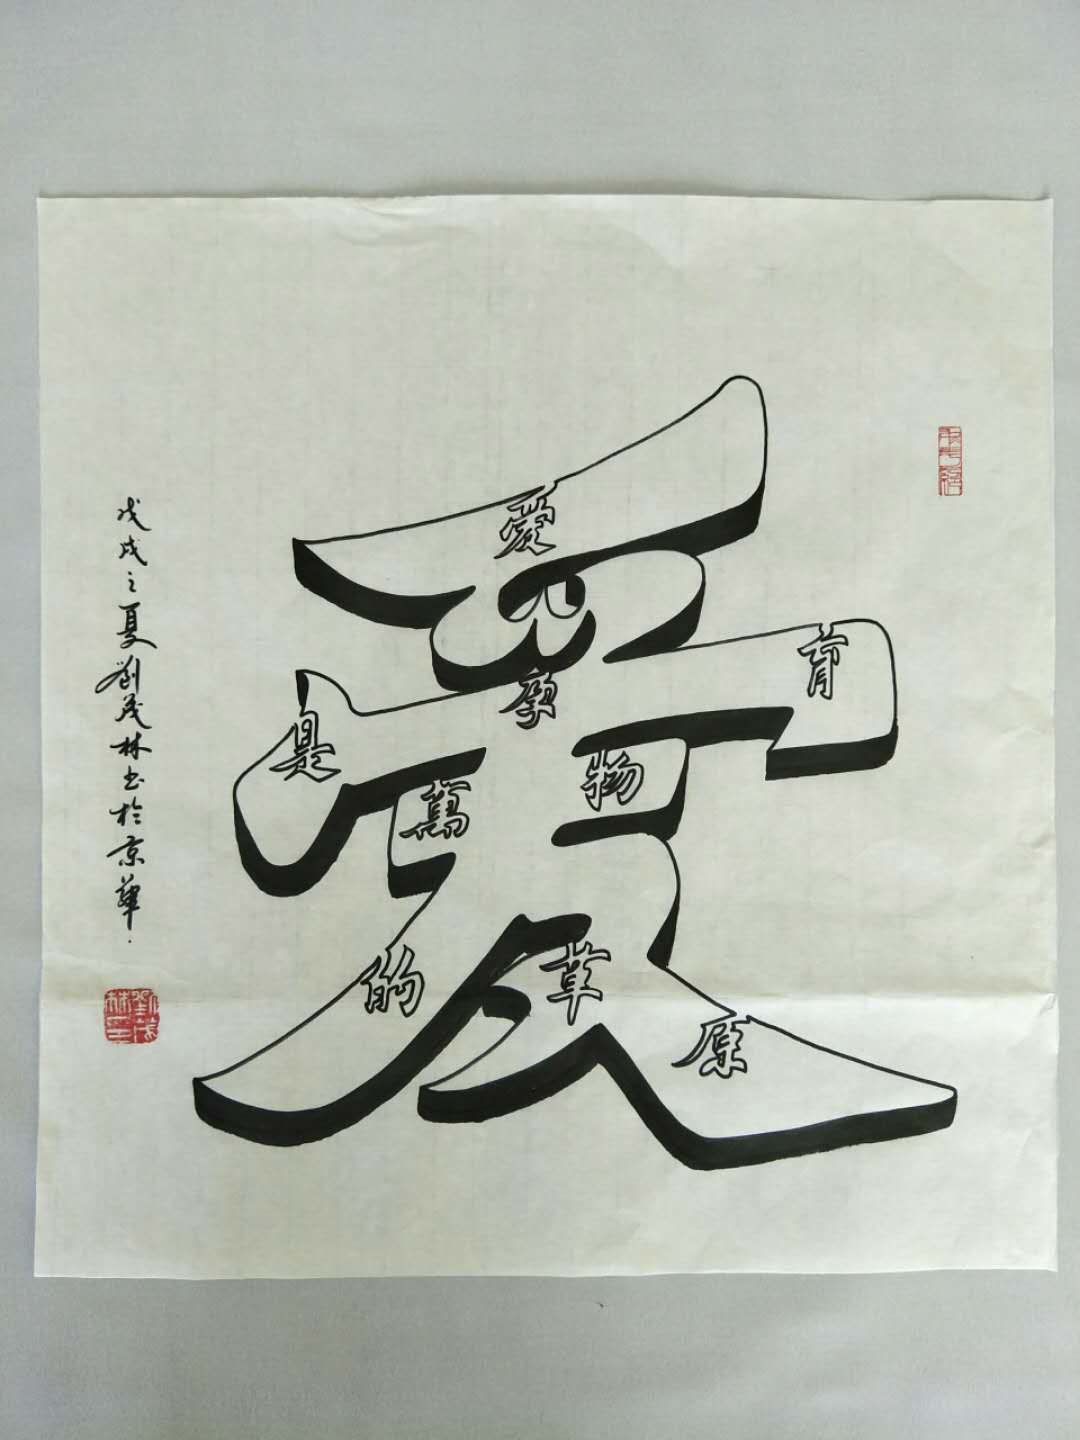 愛
愛
是孕育
萬物
的草原
戊戌之夏劉茂林书於京華
劉茂林印